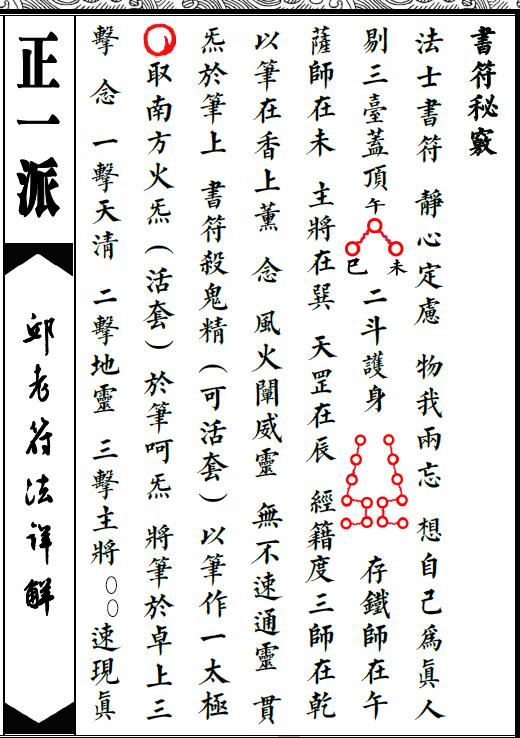 書符秘竅
法士書符 靜心定慮 物我兩忘 想自己為眞人
剔三臺蓋頂 午 未 巳 二斗護身 存鐵師在午
薩師在未 主將在巽 天罡在辰 經籍度三師在乾
以筆在香上薰 念 風火闡威靈 無不速通靈 貫
炁於筆上 書符殺鬼精(可活套)以筆作一太極
取南方火炁(活套)於筆呵炁 將筆於卓上三
擊 念 一擊天清 二擊地靈 三擊主將○○速現眞
正一派
邱老符法详解